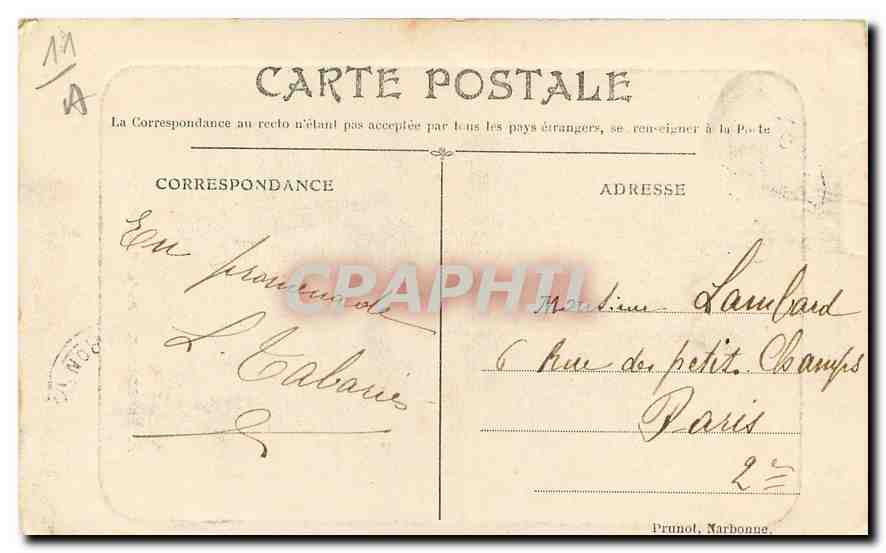 11
A
CARTE POSTALE
La Correspondance au recto n'étant pas acceptée par tous les pays étrangers, se renseigner à la Poste
CORRESPONDANCE
ADRESSE
En promenade
L. Tabariès
CPAPHIL
Monsieur Lambard
6 Rue des petit. Champs
Paris
2e
Prunot, Narbonne.